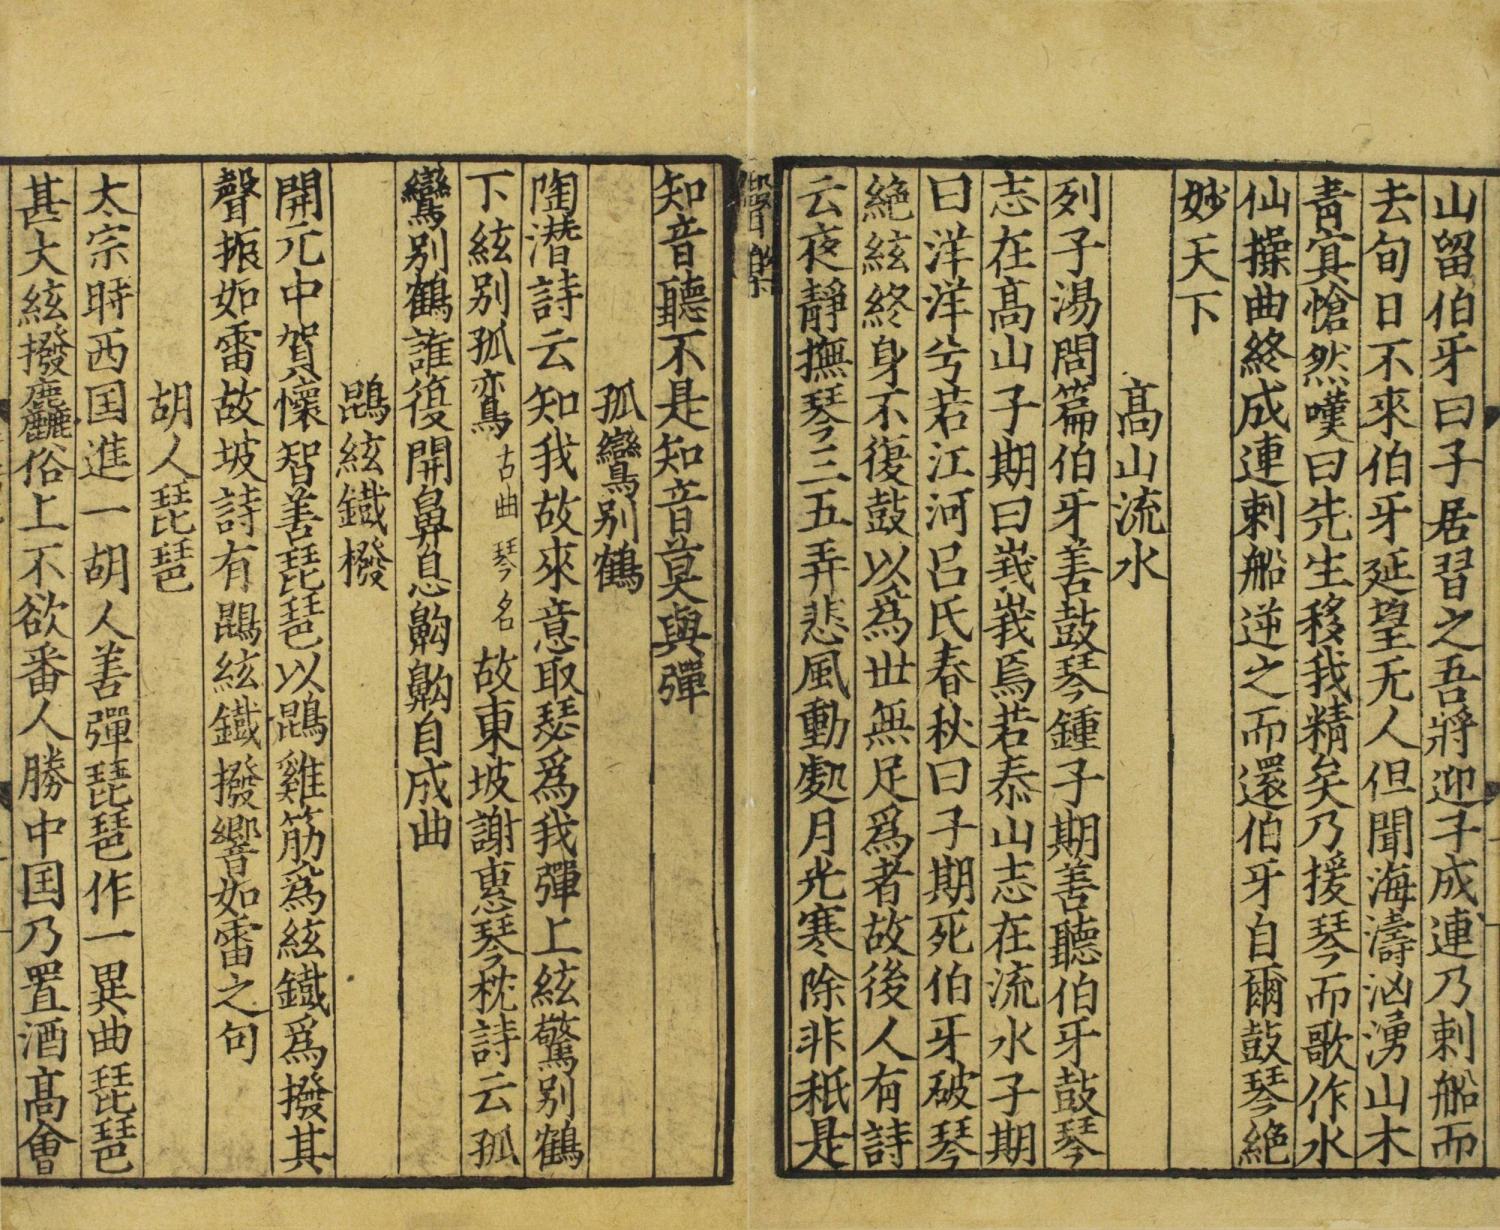 山留伯牙曰子居習之吾將迎子成連乃剌船而
去旬日不來伯牙延望无人但聞海濤汹湧山木
青㝠愴然嘆曰先生移我精矣乃援琴而歌作水
仙操曲終成連剌船逆之而還伯牙自爾鼓琴絶
妙天下
髙山流水
列子湯問篇伯牙善鼓琴鍾子期善聽伯牙鼓琴
志在髙山子期曰峩峩焉若泰山志在流水子期
曰洋洋兮若江河吕氏春秋曰子期死伯牙破琴
絶絃終身不復鼓以為世無足爲者故後人有詩
云夜靜撫琴三五弄悲風動處月光寒除非秖是
知音聽不是知音莫與彈
孤鸞别鶴
陶潜詩云知我故來意取瑟爲我彈上絃驚别鶴
下絃别孤鸾古曲琴名故東坡謝惠琴枕詩云孤
鸞别鶴誰復開鼻息齁齁自成曲
鵾絃鐡撥
開元中賀懷智善琵琶以鵾雞筋為絃鐡爲撥其
聲振如雷故坡詩有鵾絃鐡撥響如雷之句
胡人琵琶
太宗時西国進一胡人善彈琵琶作一異曲琵琶
甚大絃撥麤俗上不欲番人勝中国乃置酒髙會